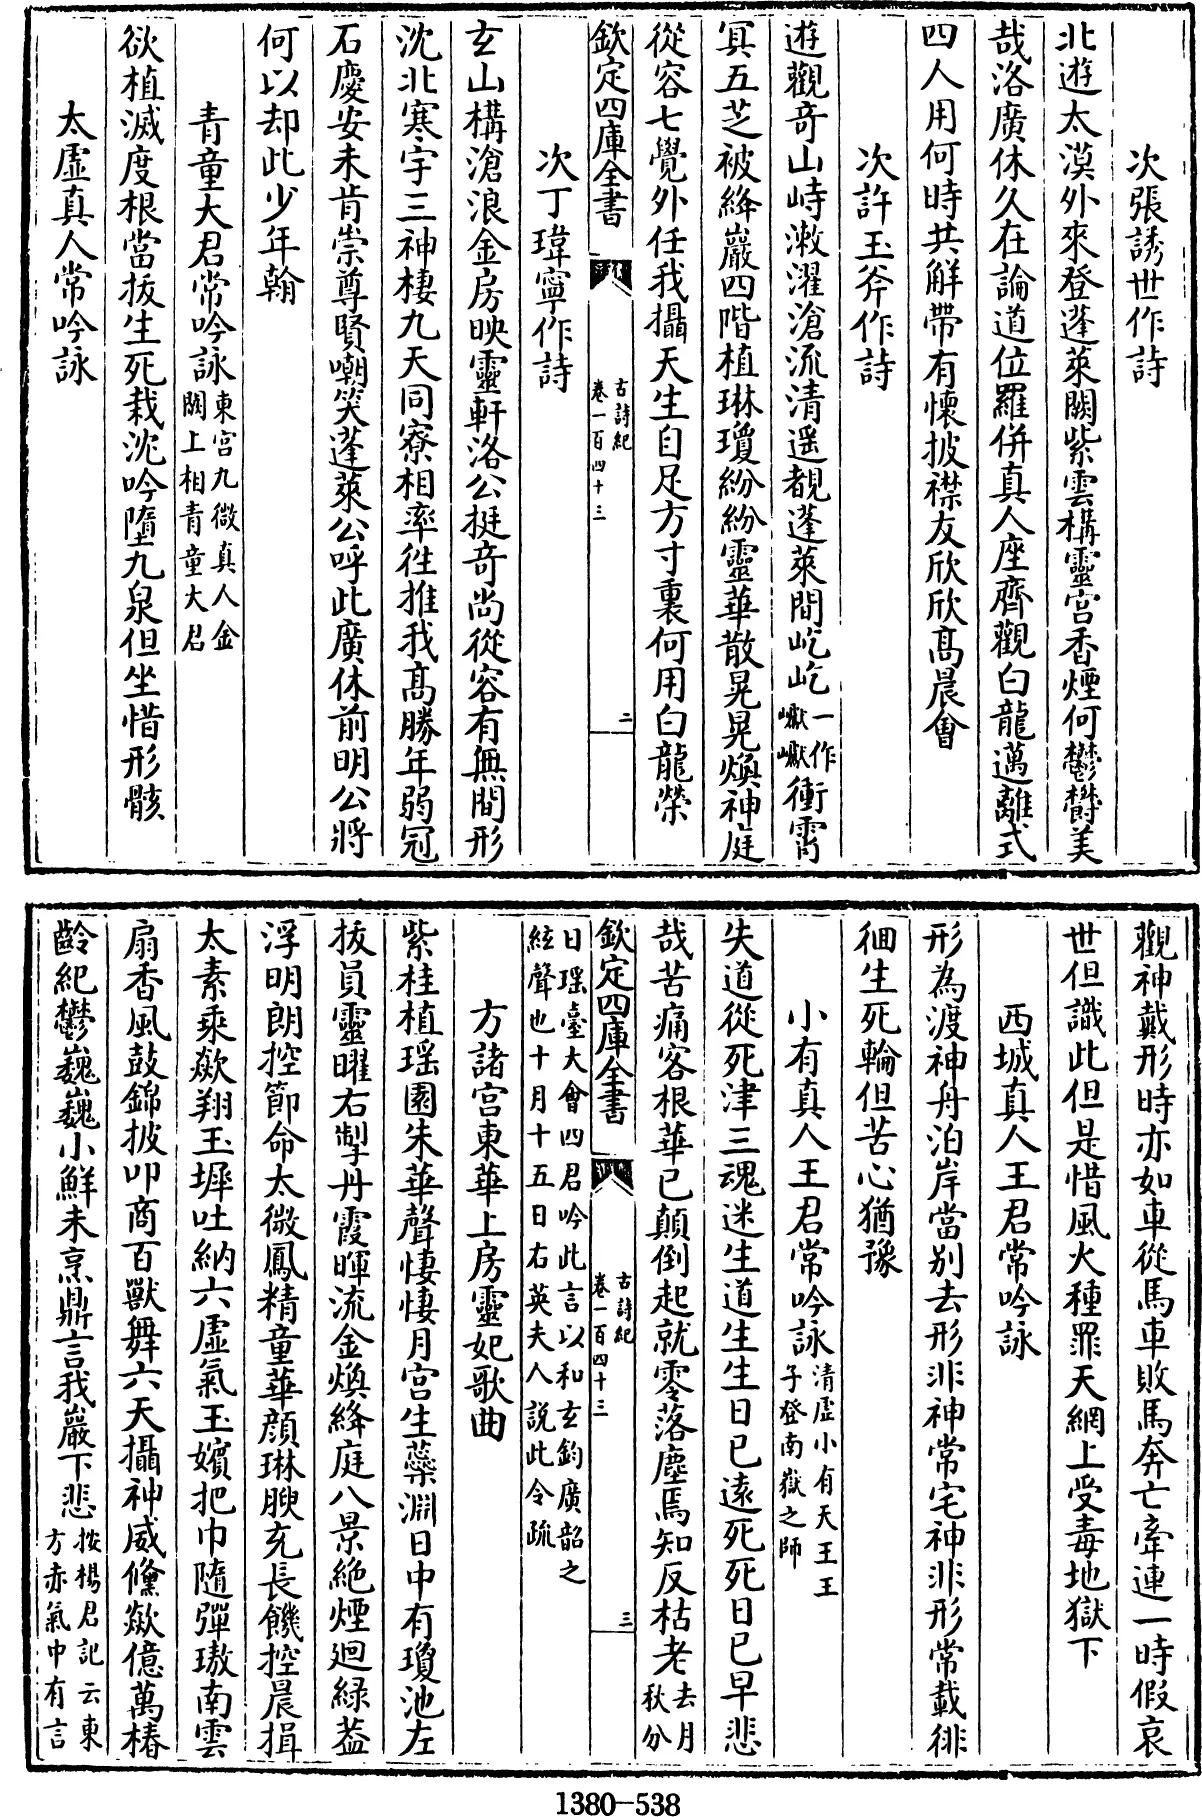 次張誘世作詩
北遊太漠外來登蓬萊闕紫雲構靈宫香煙何鬱鬱美
哉洛廣休久在論道位羅併真人座齊觀白龍邁離式
四人用何時共解帶有懷披襟友欣欣髙晨㑹
次許玉斧作詩
遊觀奇山峙漱濯滄流清遥覩蓬萊間屹屹一作巘巘衝霄
冥五芝被絳巖四階植琳瓊紛紛靈華散晃晃煥神庭
從容七覺外任我攝天生自足方寸裏何用白龍榮
欽定四庫全書
古詩紀
卷一百四十三
二
次丁瑋寧作詩
玄山構滄浪金房映靈軒洛公挺奇尚從容有無間形
沈北寒宇三神棲九天同寮相率徃推我髙勝年弱冠
石慶安未肯崇尊賢嘲笑蓬萊公呼此廣休前明公將
何以却此少年翰
青童大君常吟詠東宫九微真人金闕上相青童大君
欲植滅度根當拔生死栽沈吟墮九泉但坐惜形骸
太虛真人常吟詠
觀神載形時亦如車從馬車敗馬奔亡牽連一時假哀
世但識此但是惜風火種罪天網上受毒地獄下
西城真人王君常吟詠
形為渡神舟泊岸當别去形非神常宅神非形常載徘
徊生死輪但苦心猶豫
小有真人王君常吟詠清虛小有天王王子登南嶽之師
失道從死津三魂迷生道生生日已逺死死日已早悲
哉苦痛客根華已顛倒起就零落塵焉知反枯老去月秋分
欽定四庫全書
古詩紀
卷一百四十三
三
日瑶臺大會四君吟此言以和玄鈞廣韶之
絃聲也十月十五日右英夫人説此令疏
方諸宫東華上房靈妃歌曲
紫桂植瑶園朱華聲悽悽月宫生蘂淵日中有瓊池左
拔員靈曜右掣丹霞暉流金煥絳庭八景絶煙廻緑葢
浮明朗控節命太微鳳精童華顔琳腴充長饑控晨揖
太素乘欻翔玉墀吐納六虛氣玉嬪把巾隨彈璈南雲
扇香風鼓錦披叩商百獸舞六天攝神威儵欻億萬椿
齡紀鬱巍巍小鮮未烹鼎言我巖下悲按楊君記云東方赤氣中有言
1380-538